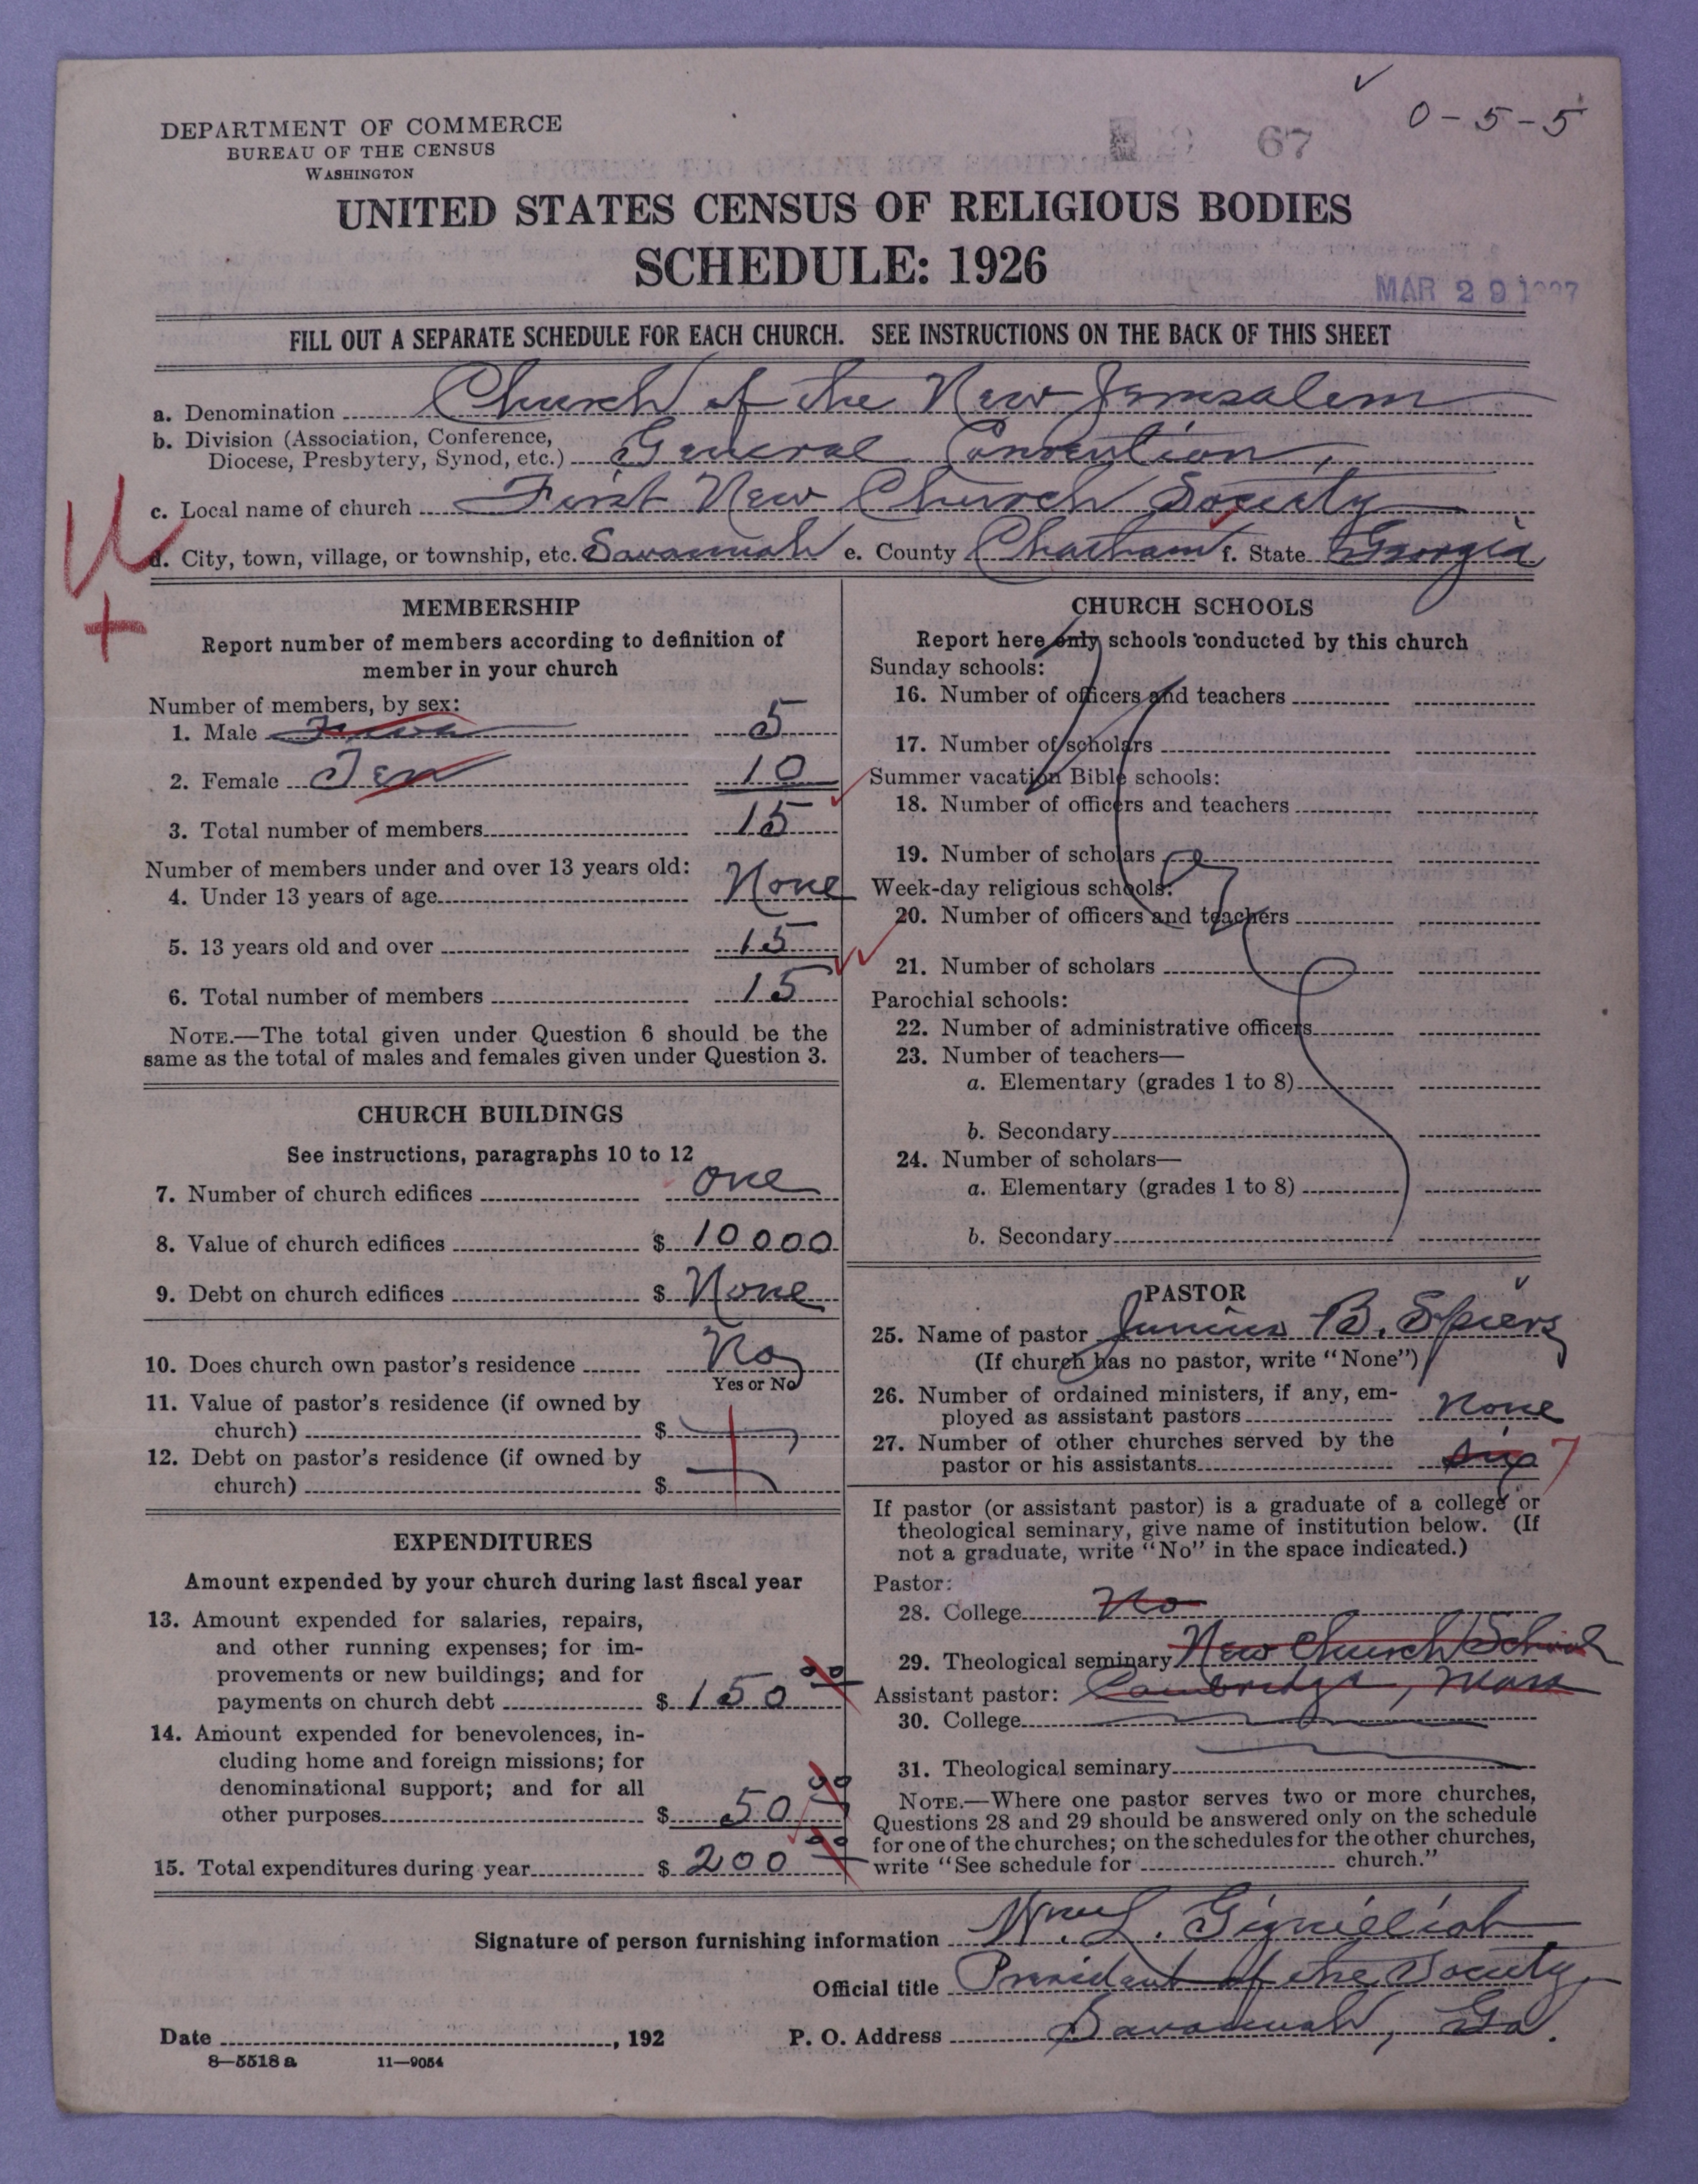 0-5-5
67
DEPARTMENT OF COMMERCE
BUREAU OF THE CENSUS
WASHINGTON
UNITED STATES CENSUS OF RELIGIOUS BODIES
SCHEDULE: 1926
MAR 29 1927
FILL OUT A SEPARATE SCHEDULE FOR EACH CHURCH. SEE INSTRUCTIONS ON THE BACK OF THIS SHEET
a. Denomination Church of the New Jerusalem
b. Division (Association, Conference,
Diocese, Presbytery, Synod, etc.) General Convention,
c. Local name of church First New Church Society
d. City, town, village, or township, etc. Savannah e. County Chatham f. State Georgia
MEMBERSHIP
Report number of members according to definition of
member in your church
Number of members, by sex:
1. Male 5
2. Female Ten 10
3. Total number of members 15
Number of members under and over 13 years old:
4. Under 13 years of age None
5. 13 years old and over 15
6. Total number of members 15
NOTE.—The total given under Question 6 should be the
same as the total of males and females given under Question 3.
CHURCH BUILDINGS
See instructions, paragraphs 10 to 12
7. Number of church edifices one
8. Value of church edifices $ 10000
9. Debt on church edifices $ None
10. Does church own pastor's residence No
Yes or No
11. Value of pastor's residence (if owned by
church) $
12. Debt on pastor's residence (if owned by
church) $
EXPENDITURES
Amount expended by your church during last fiscal year
13. Amount expended for salaries, repairs,
and other running expenses; for im-
provements or new buildings; and for
payments on church debt $ 150 00
14. Amount expended for benevolences, in-
cluding home and foreign missions; for
denominational support; and for all
other purposes $ 50 00
15. Total expenditures during year $ 200 00
CHURCH SCHOOLS
Report here only schools conducted by this church
Sunday schools:
16. Number of officers and teachers
17. Number of scholars
Summer vacation Bible schools:
18. Number of officers and teachers
19. Number of scholars
Week-day religious schools:
20. Number of officers and teachers
21. Number of scholars
Parochial schools:
22. Number of administrative officers
23. Number of teachers—
a. Elementary (grades 1 to 8)
b. Secondary
24. Number of scholars—
a. Elementary (grades 1 to 8)
b. Secondary
PASTOR
25. Name of pastor Junius B. Spiers
(If church has no pastor, write "None")
26. Number of ordained ministers, if any, em-
ployed as assistant pastors None
27. Number of other churches served by the
pastor or his assistants six 7
If pastor (or assistant pastor) is a graduate of a college or
theological seminary, give name of institution below. (If
not a graduate, write "No" in the space indicated.)
Pastor:
28. College No
29. Theological seminary New Church School
Assistant pastor: Cambridge, Mass
30. College
31. Theological seminary
NOTE.—Where one pastor serves two or more churches,
Questions 28 and 29 should be answered only on the schedule
for one of the churches; on the schedules for the other churches,
write "See schedule for church."
Signature of person furnishing information Wm. L. Gignilliat
Official title President of the Society
Date , 192 P. O. Address Savannah, Ga.
8—5518 a 11—9054